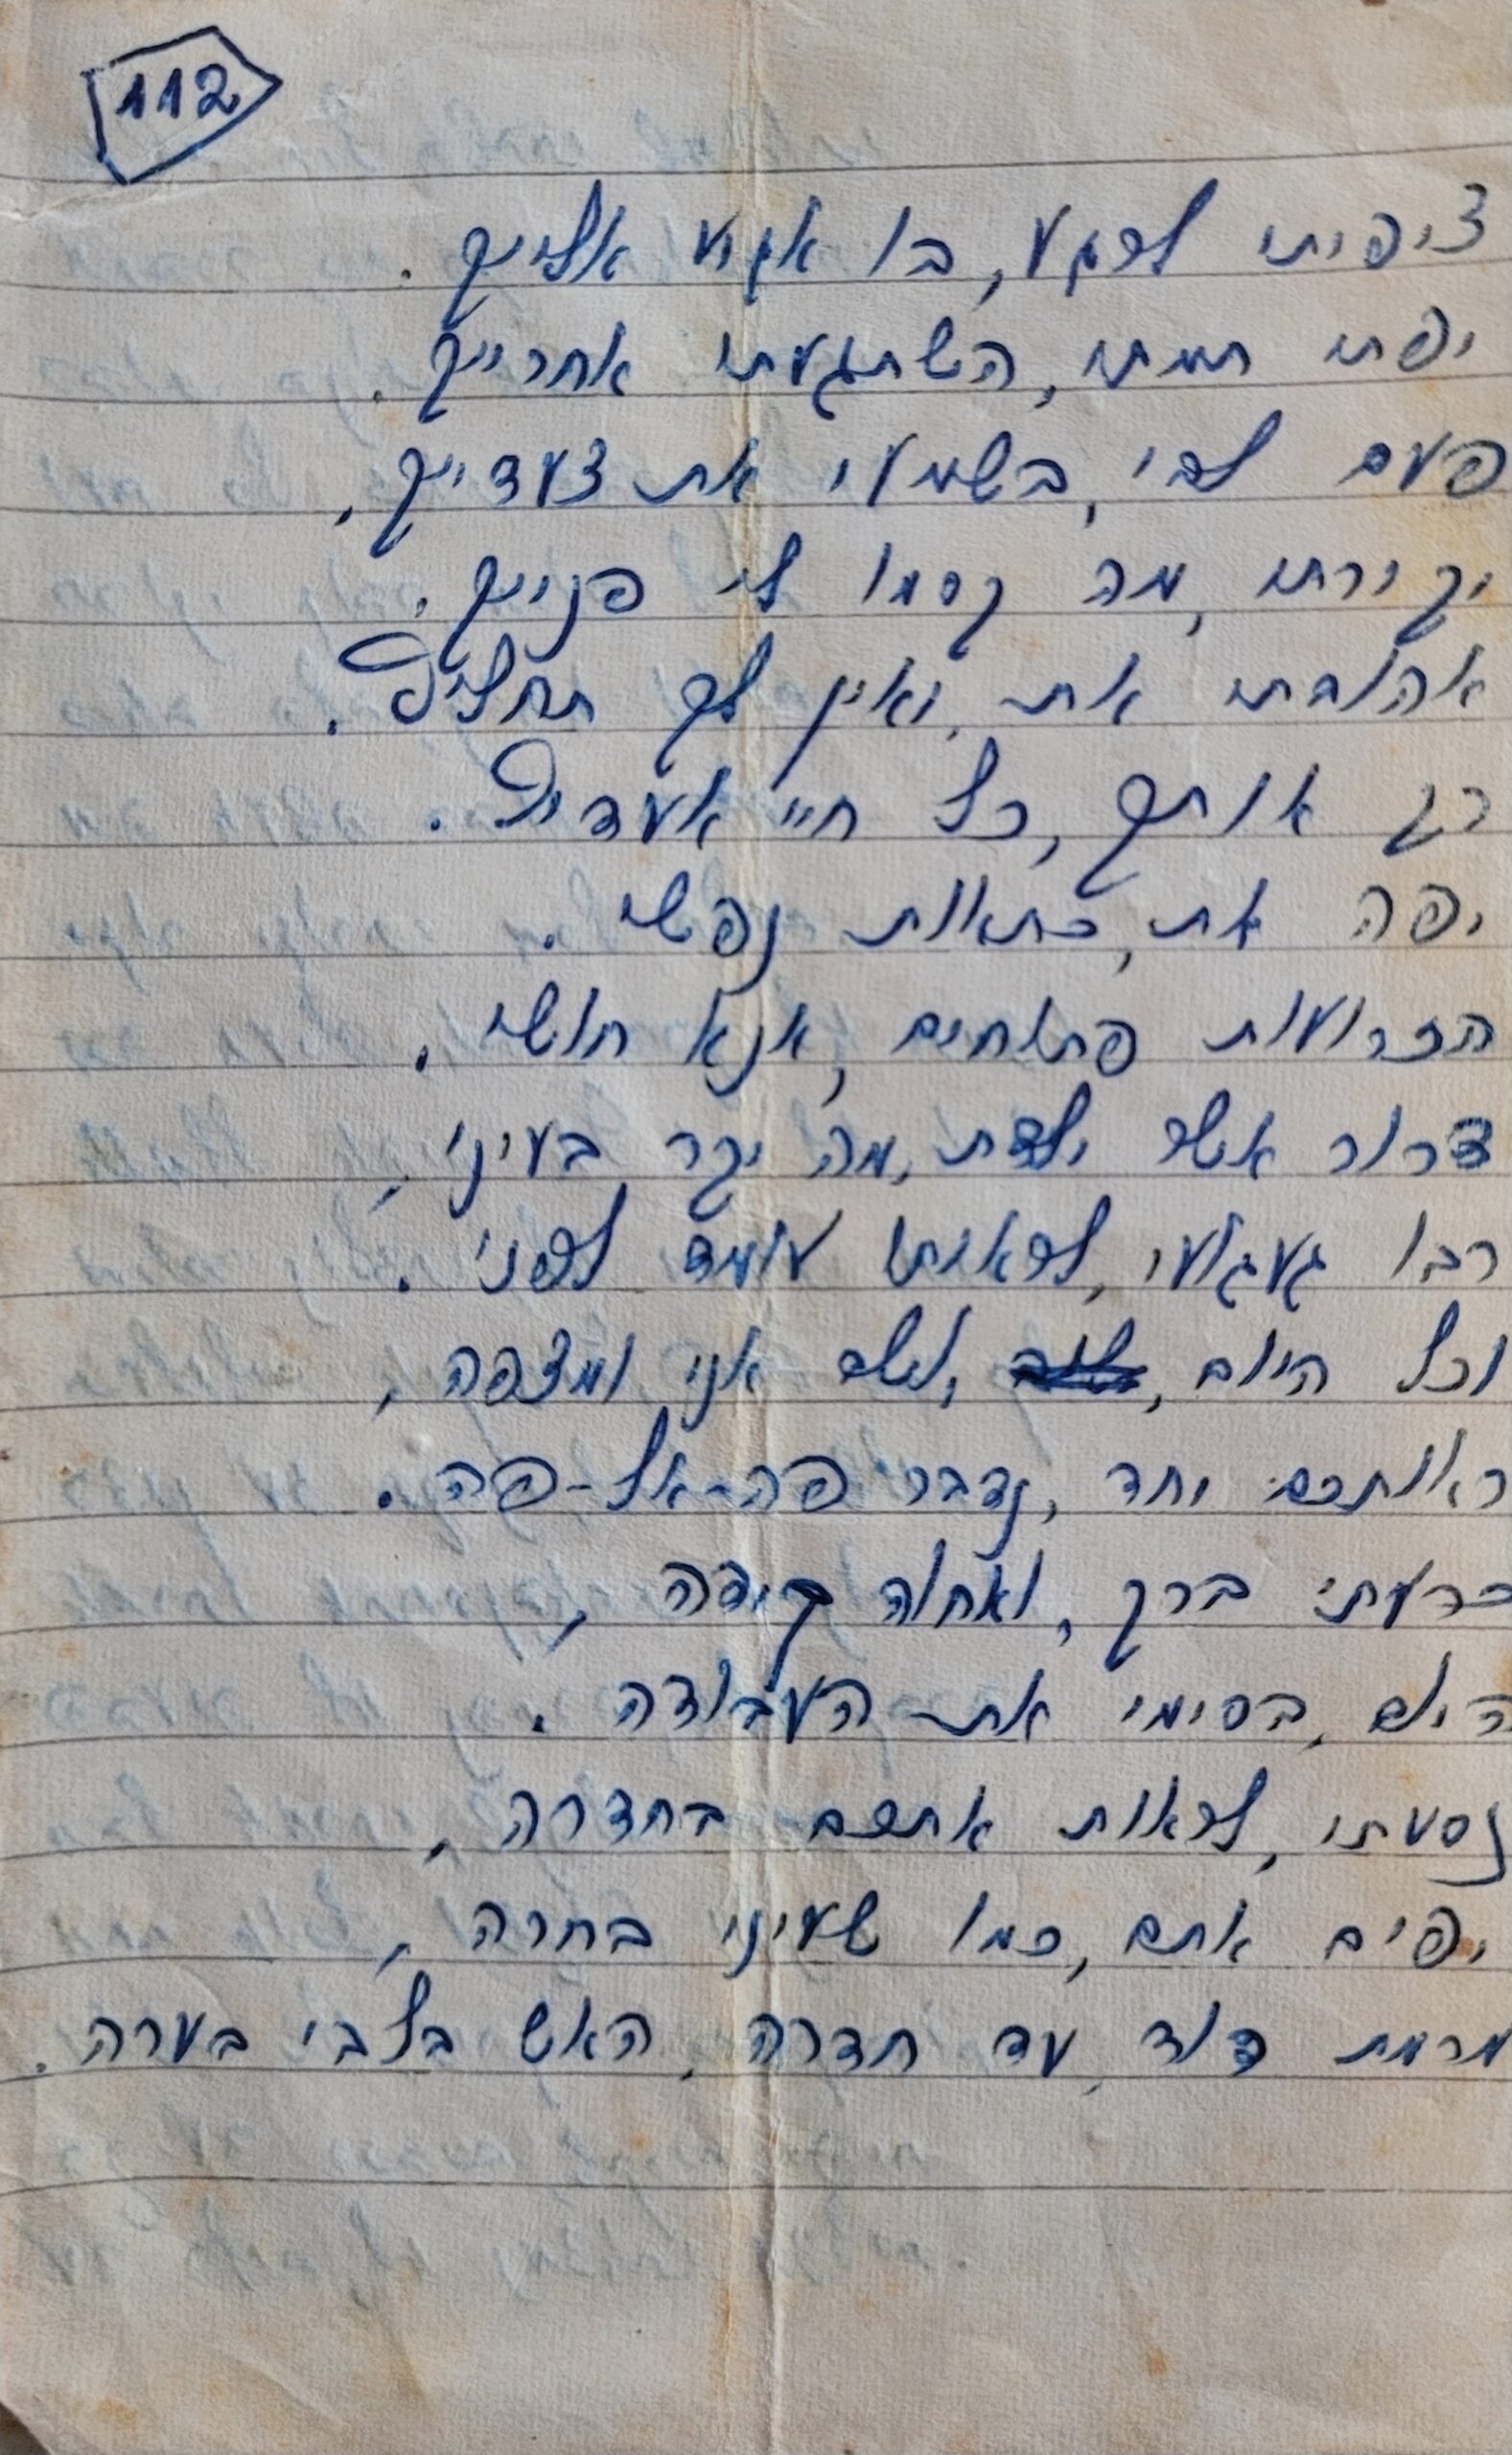 112
ציפיתי לרגע, בו אגיע אלייך.
יפתי תמתי, השתגעתי אחרייך.
פעם לבי, בשמעי את צעדייך,
יקירתי, מה קסמו לי פנייך.
אהובתי את, ואין לך תחליף.
רק אותך, כל חיי אעדיף.
יפה את, כתאות נפשי.
הזרועות פתוחים, אנא חושי.
דרור אשר ילדת, מה יקר בעיני,
רבו געגועי, לראותו עומד לפני.
וכל היום, יושב אני ומצפה,
ראותכם יחד, נדבר פה-אל-פה.
כרעתי ברך, ואחוה קידה,
היום, בסימי את העבודה.
נסעתי, לראות אתכם בחדרה,
יפים אתם, כמו שעיני בחרה,
מרמת דוד, עד חדרה, האש בלבי בערה.